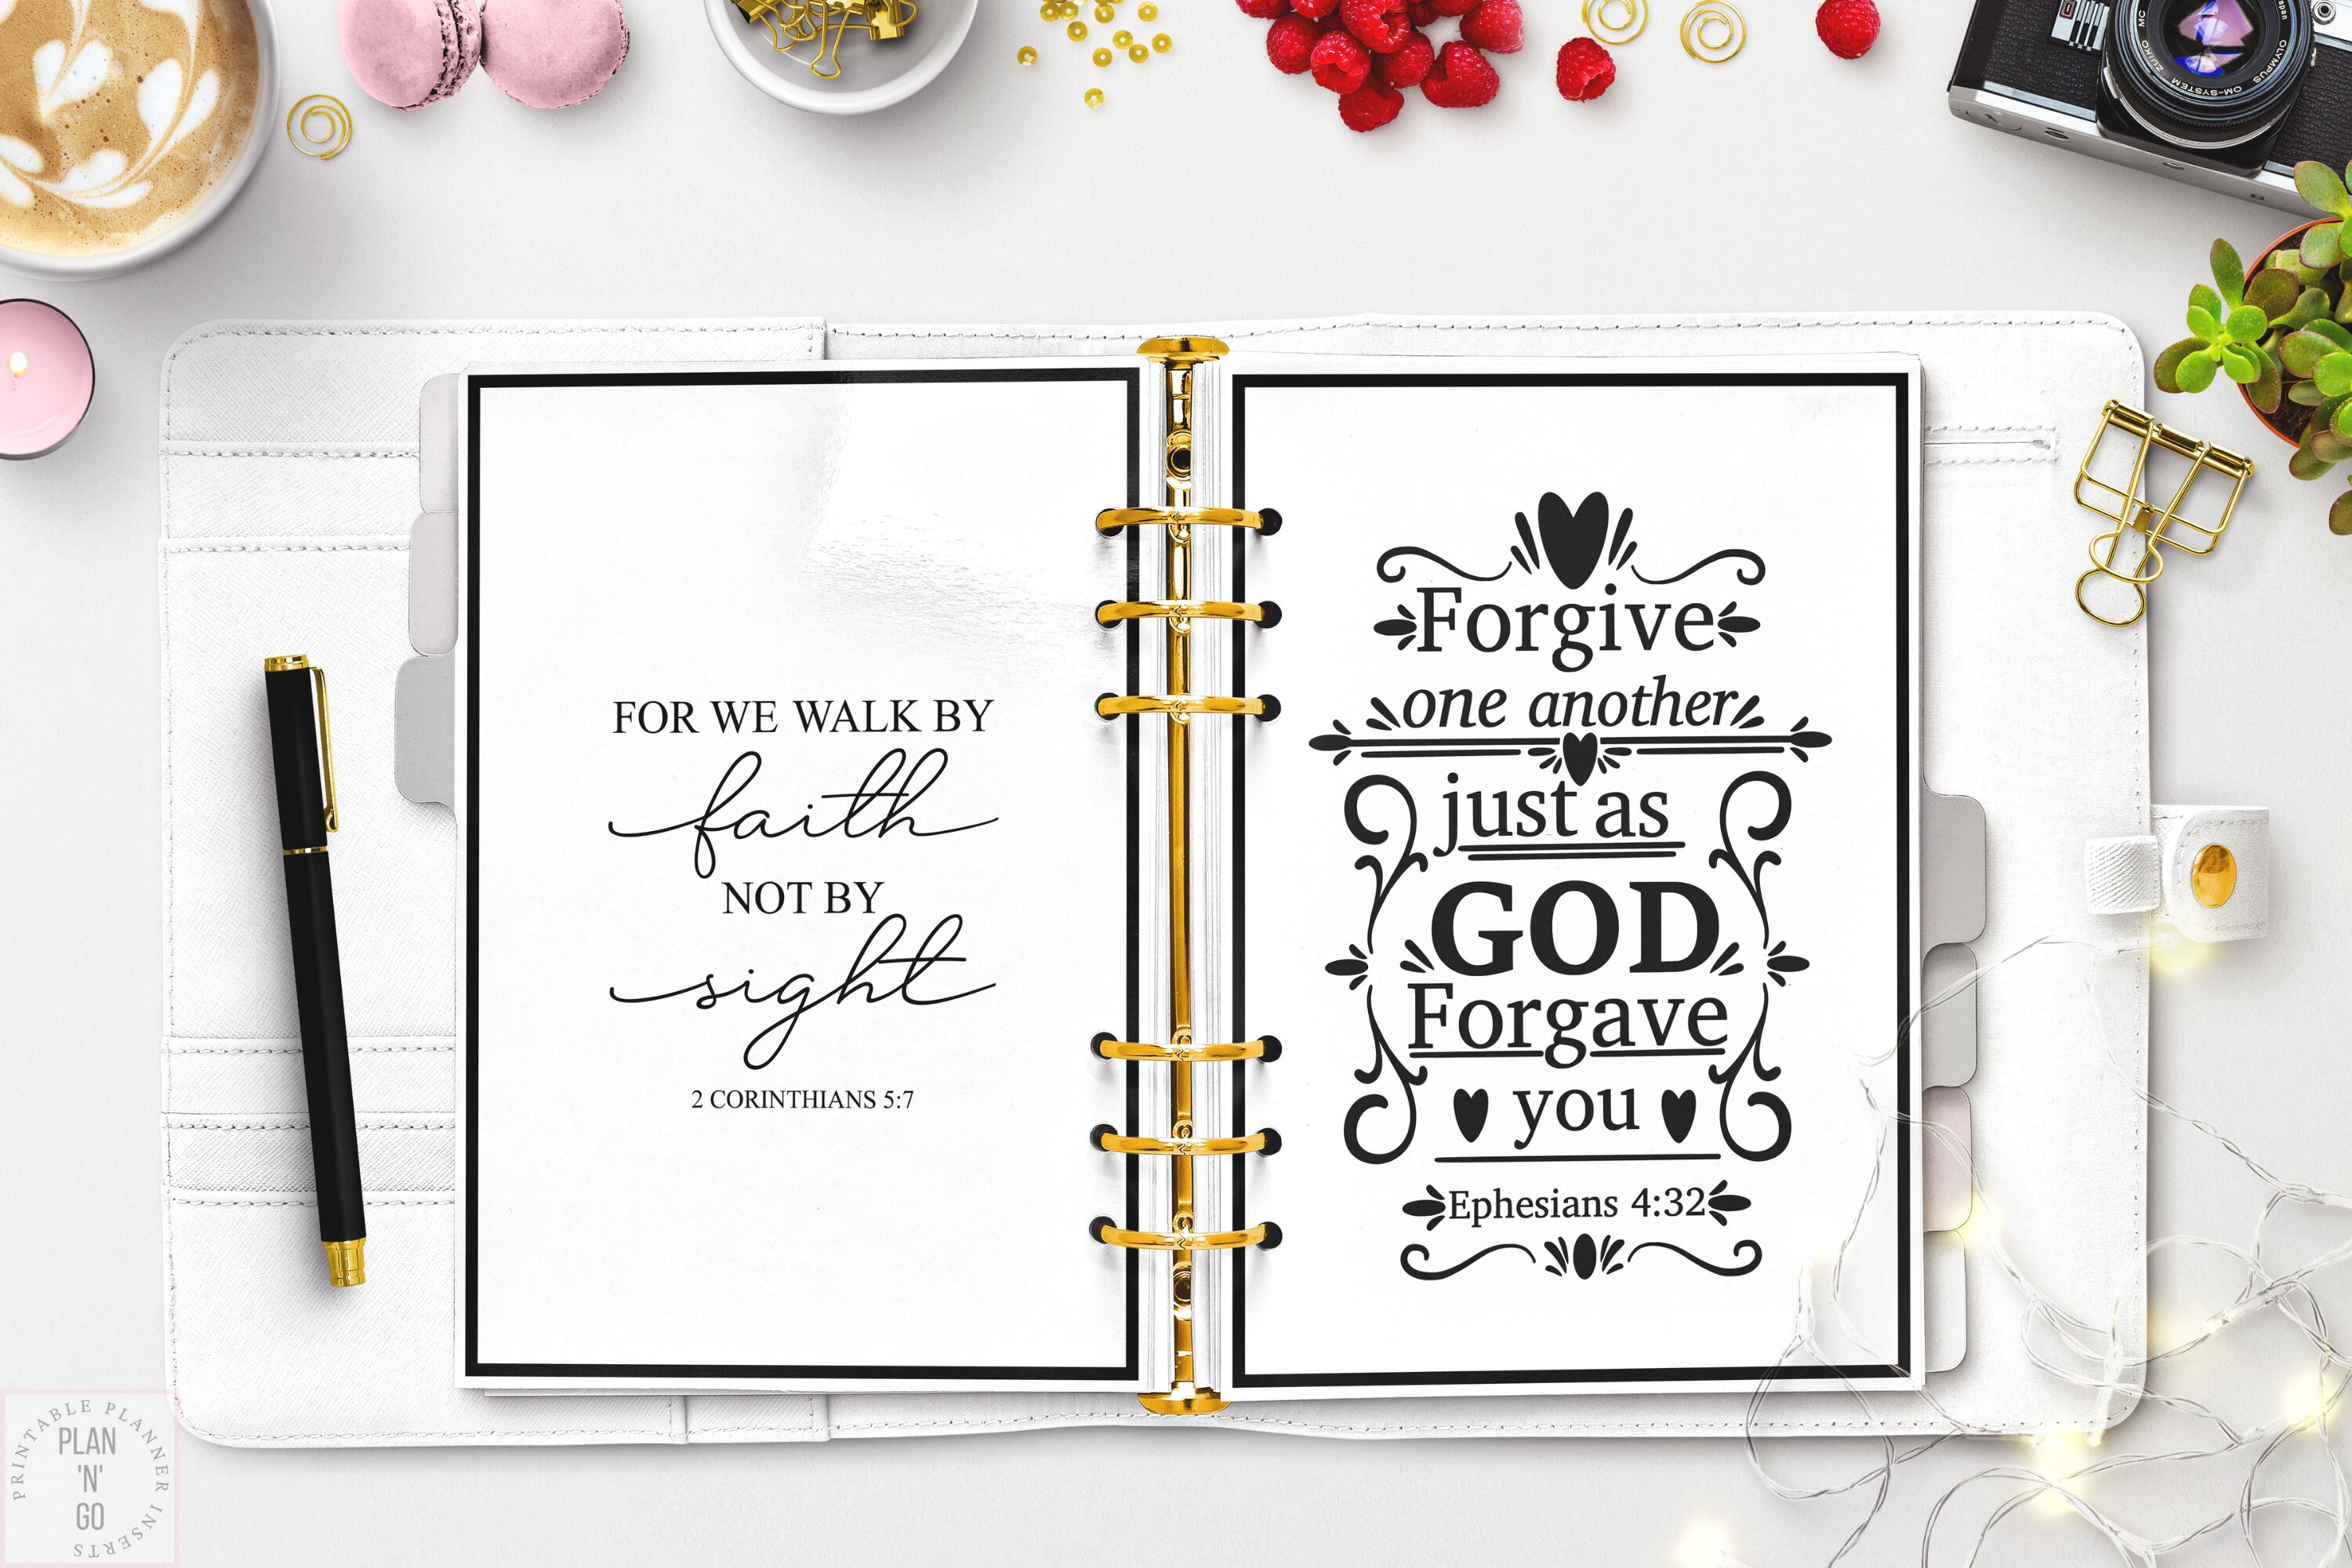 FOR WE WALK BY
faith
NOT BY
sight
2 CORINTHIANS 5:7
Forgive
one another
just as
GOD
Forgave
you
Ephesians 4:32
OLYMPUS
OM-SYSTEM
ZUIKO
MC
PRINTABLE PLANNER INSERTS
PLAN
'N'
GO